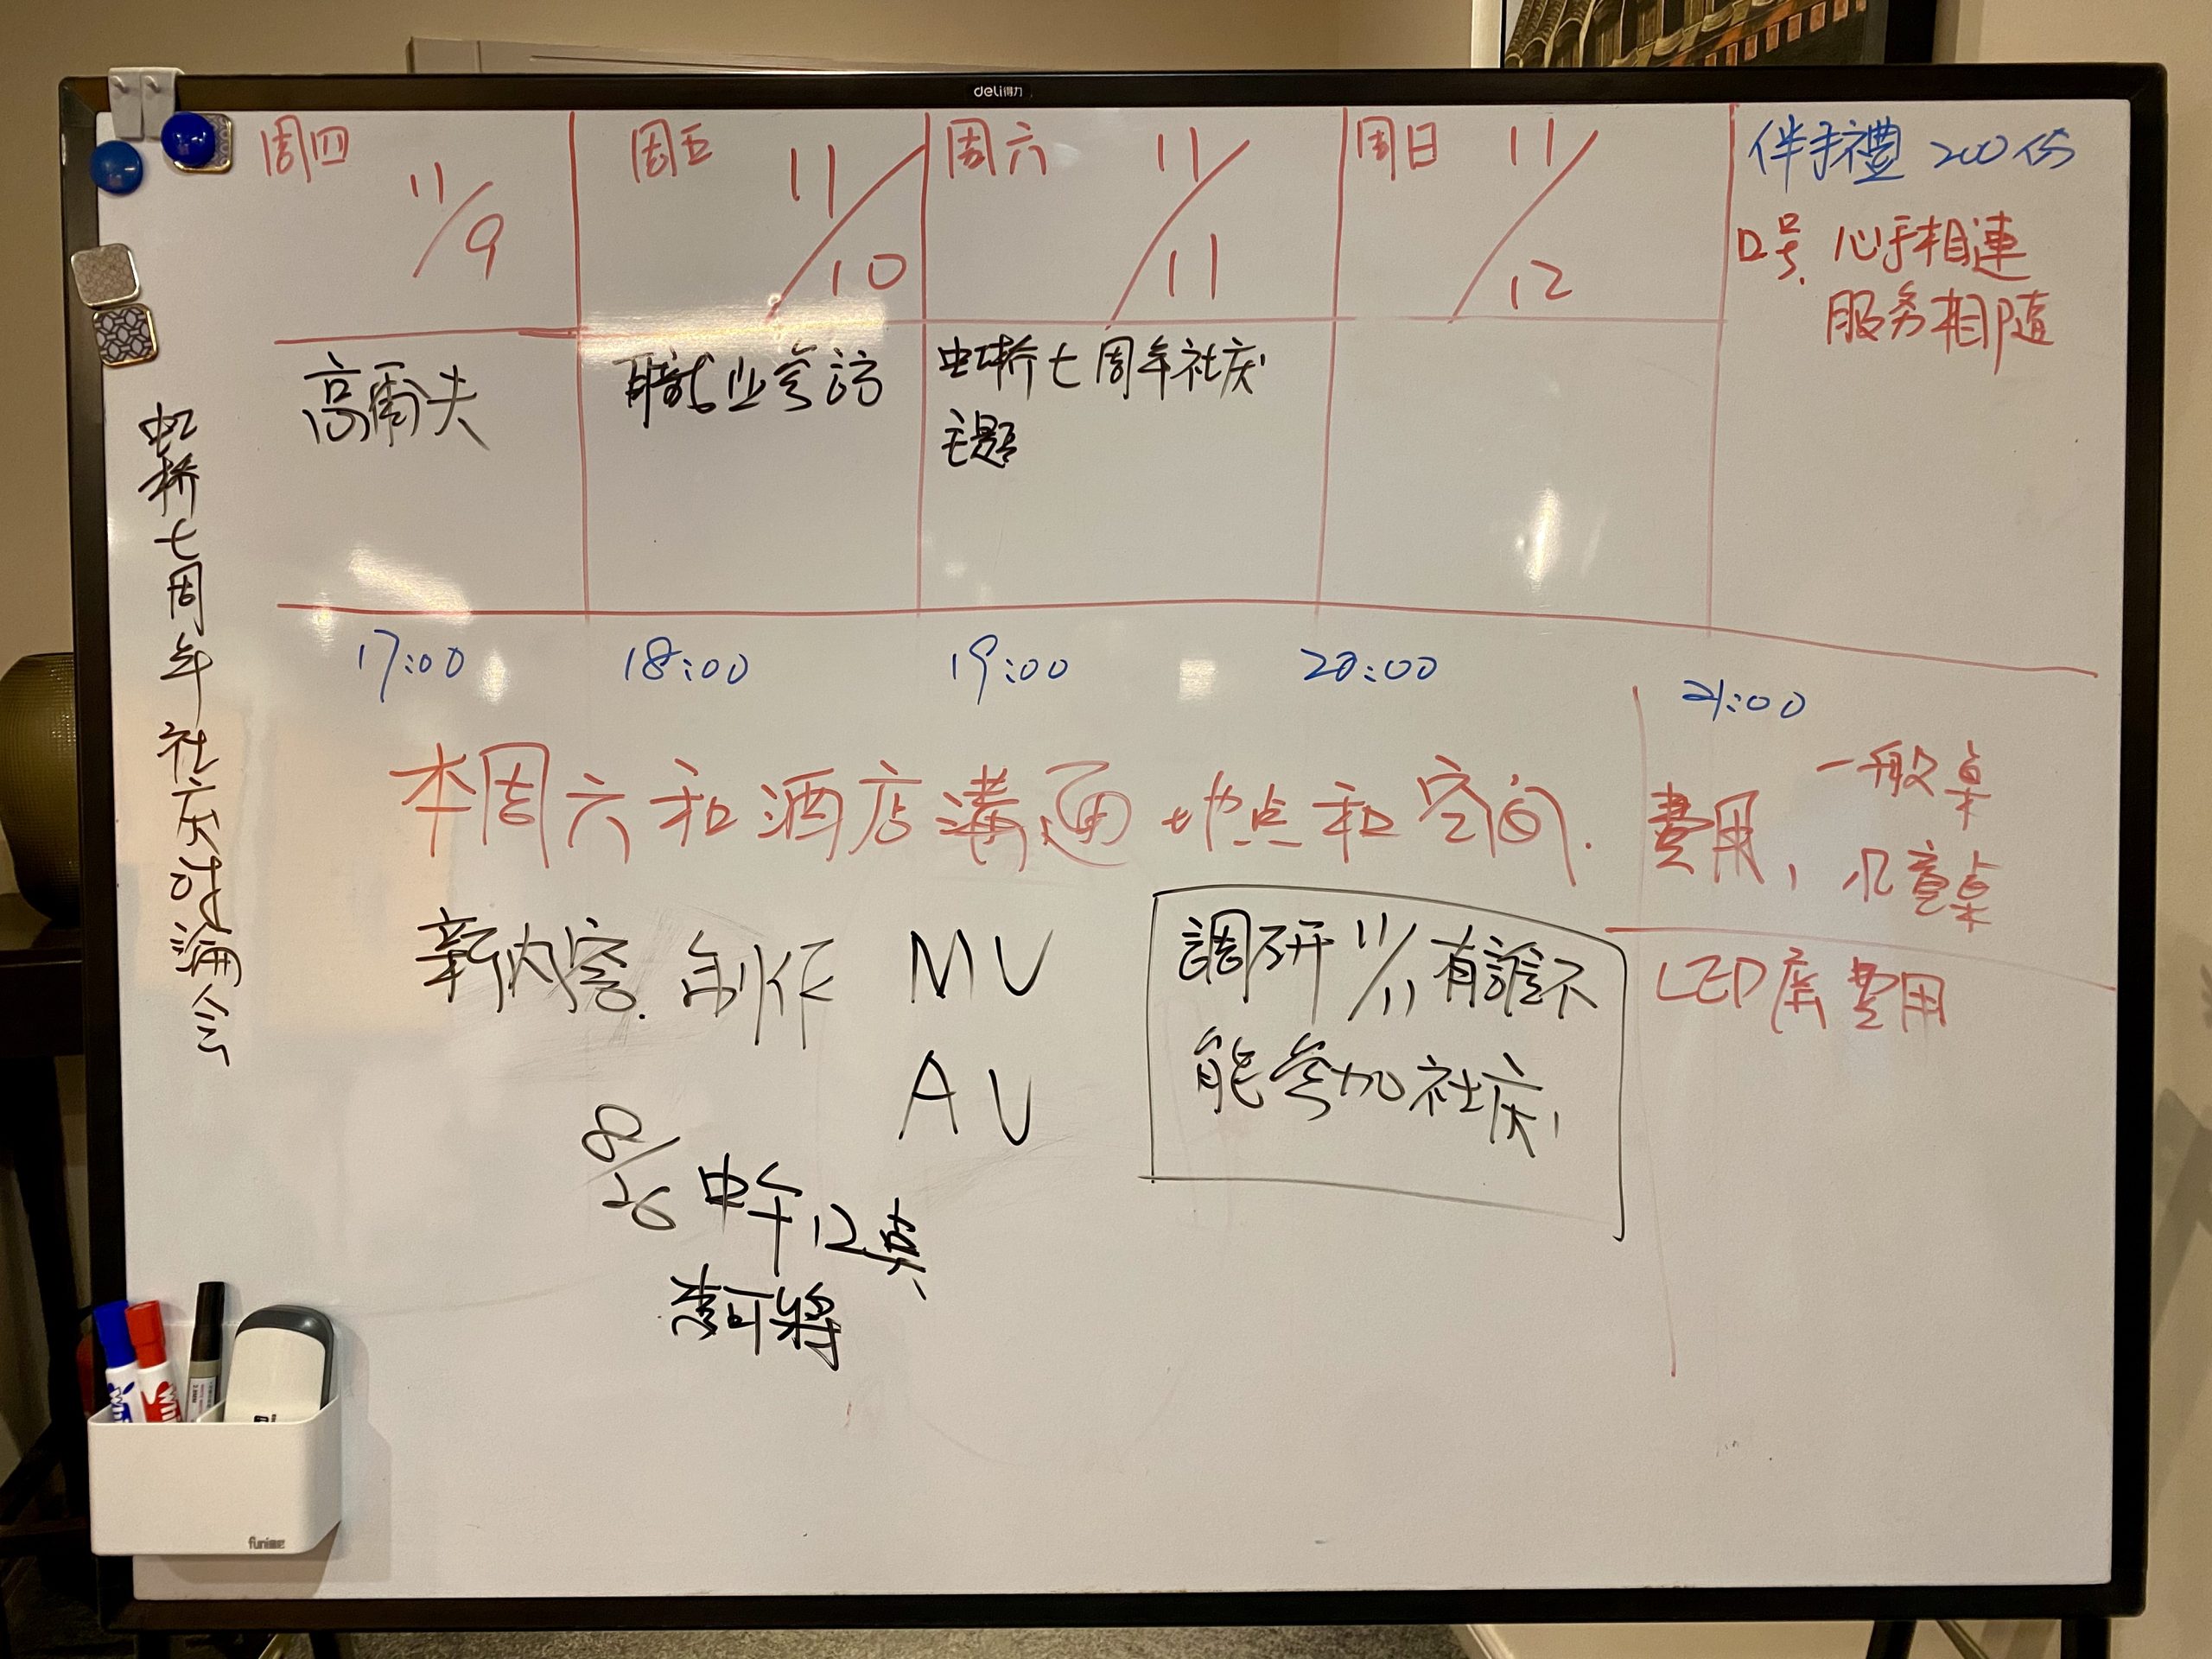 deli得力
周四 11/9
周五 11/10
周六 11/11
周日 11/12
伴手禮 200份
口号. 心手相連
服务相隨
高爾夫
職业参访
虹桥七周年社庆
主题
虹桥七周年社庆讨論会
17:00 18:00 19:00 20:00 21:00
本周六和酒店溝通 地点和空间.
費用, 一般桌
儿童桌
LED屏費用
新内容. 創作 MV
AV
調研 11/11 有誰不
能参加社庆,
8/26 中午 12点
funime